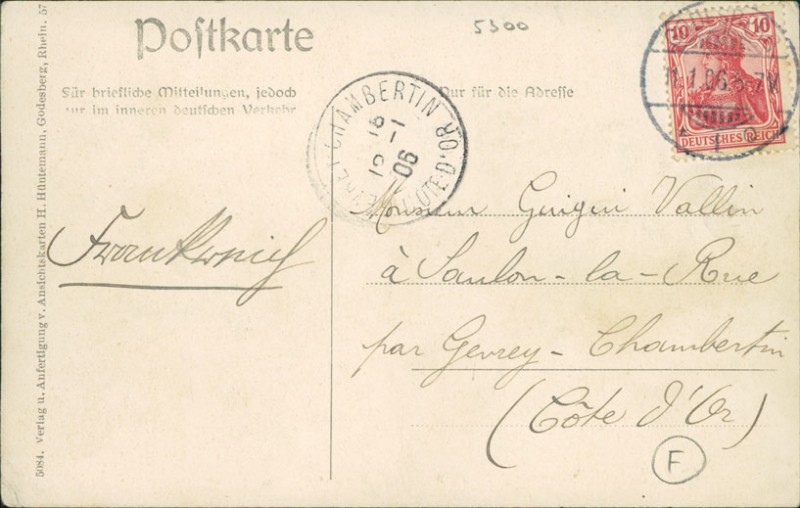 5300
Postkarte
Für briefliche Mitteilungen, jedoch
nur im inneren deutschen Verkehr
Nur für die Adresse
10 10
DEUTSCHES REICH
11.1.06. 6-7V
GEVREY-CHAMBERTIN
CÔTE-D'OR
16-1
06
Frankreich
Monsieur Guigui Vallin
à Saulon-la-Rue
par Gevrey-Chambertin
(Côte d'Or)
F
5084. Verlag u. Anfertigung v. Ansichtskarten H. Hüntemann, Godesberg, Rhein. 57